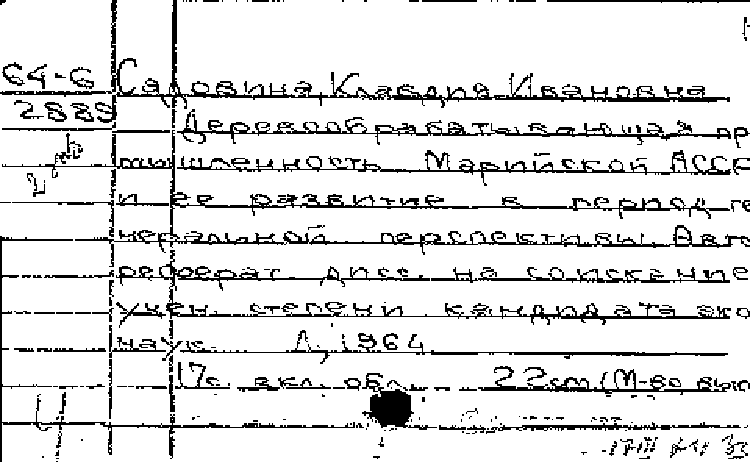 64-6 Садовина, Клавдия Ивановна
2889 Деревообрабатывающая пр
мышленность Марийской АССР
и ее развитие в период ге
неральной перспективы. Авто
реферат дисс. на соискание
учен. степени кандидата эко
наук. Л., 1964.
17с. вкл. обл. 22см. (М-во выс